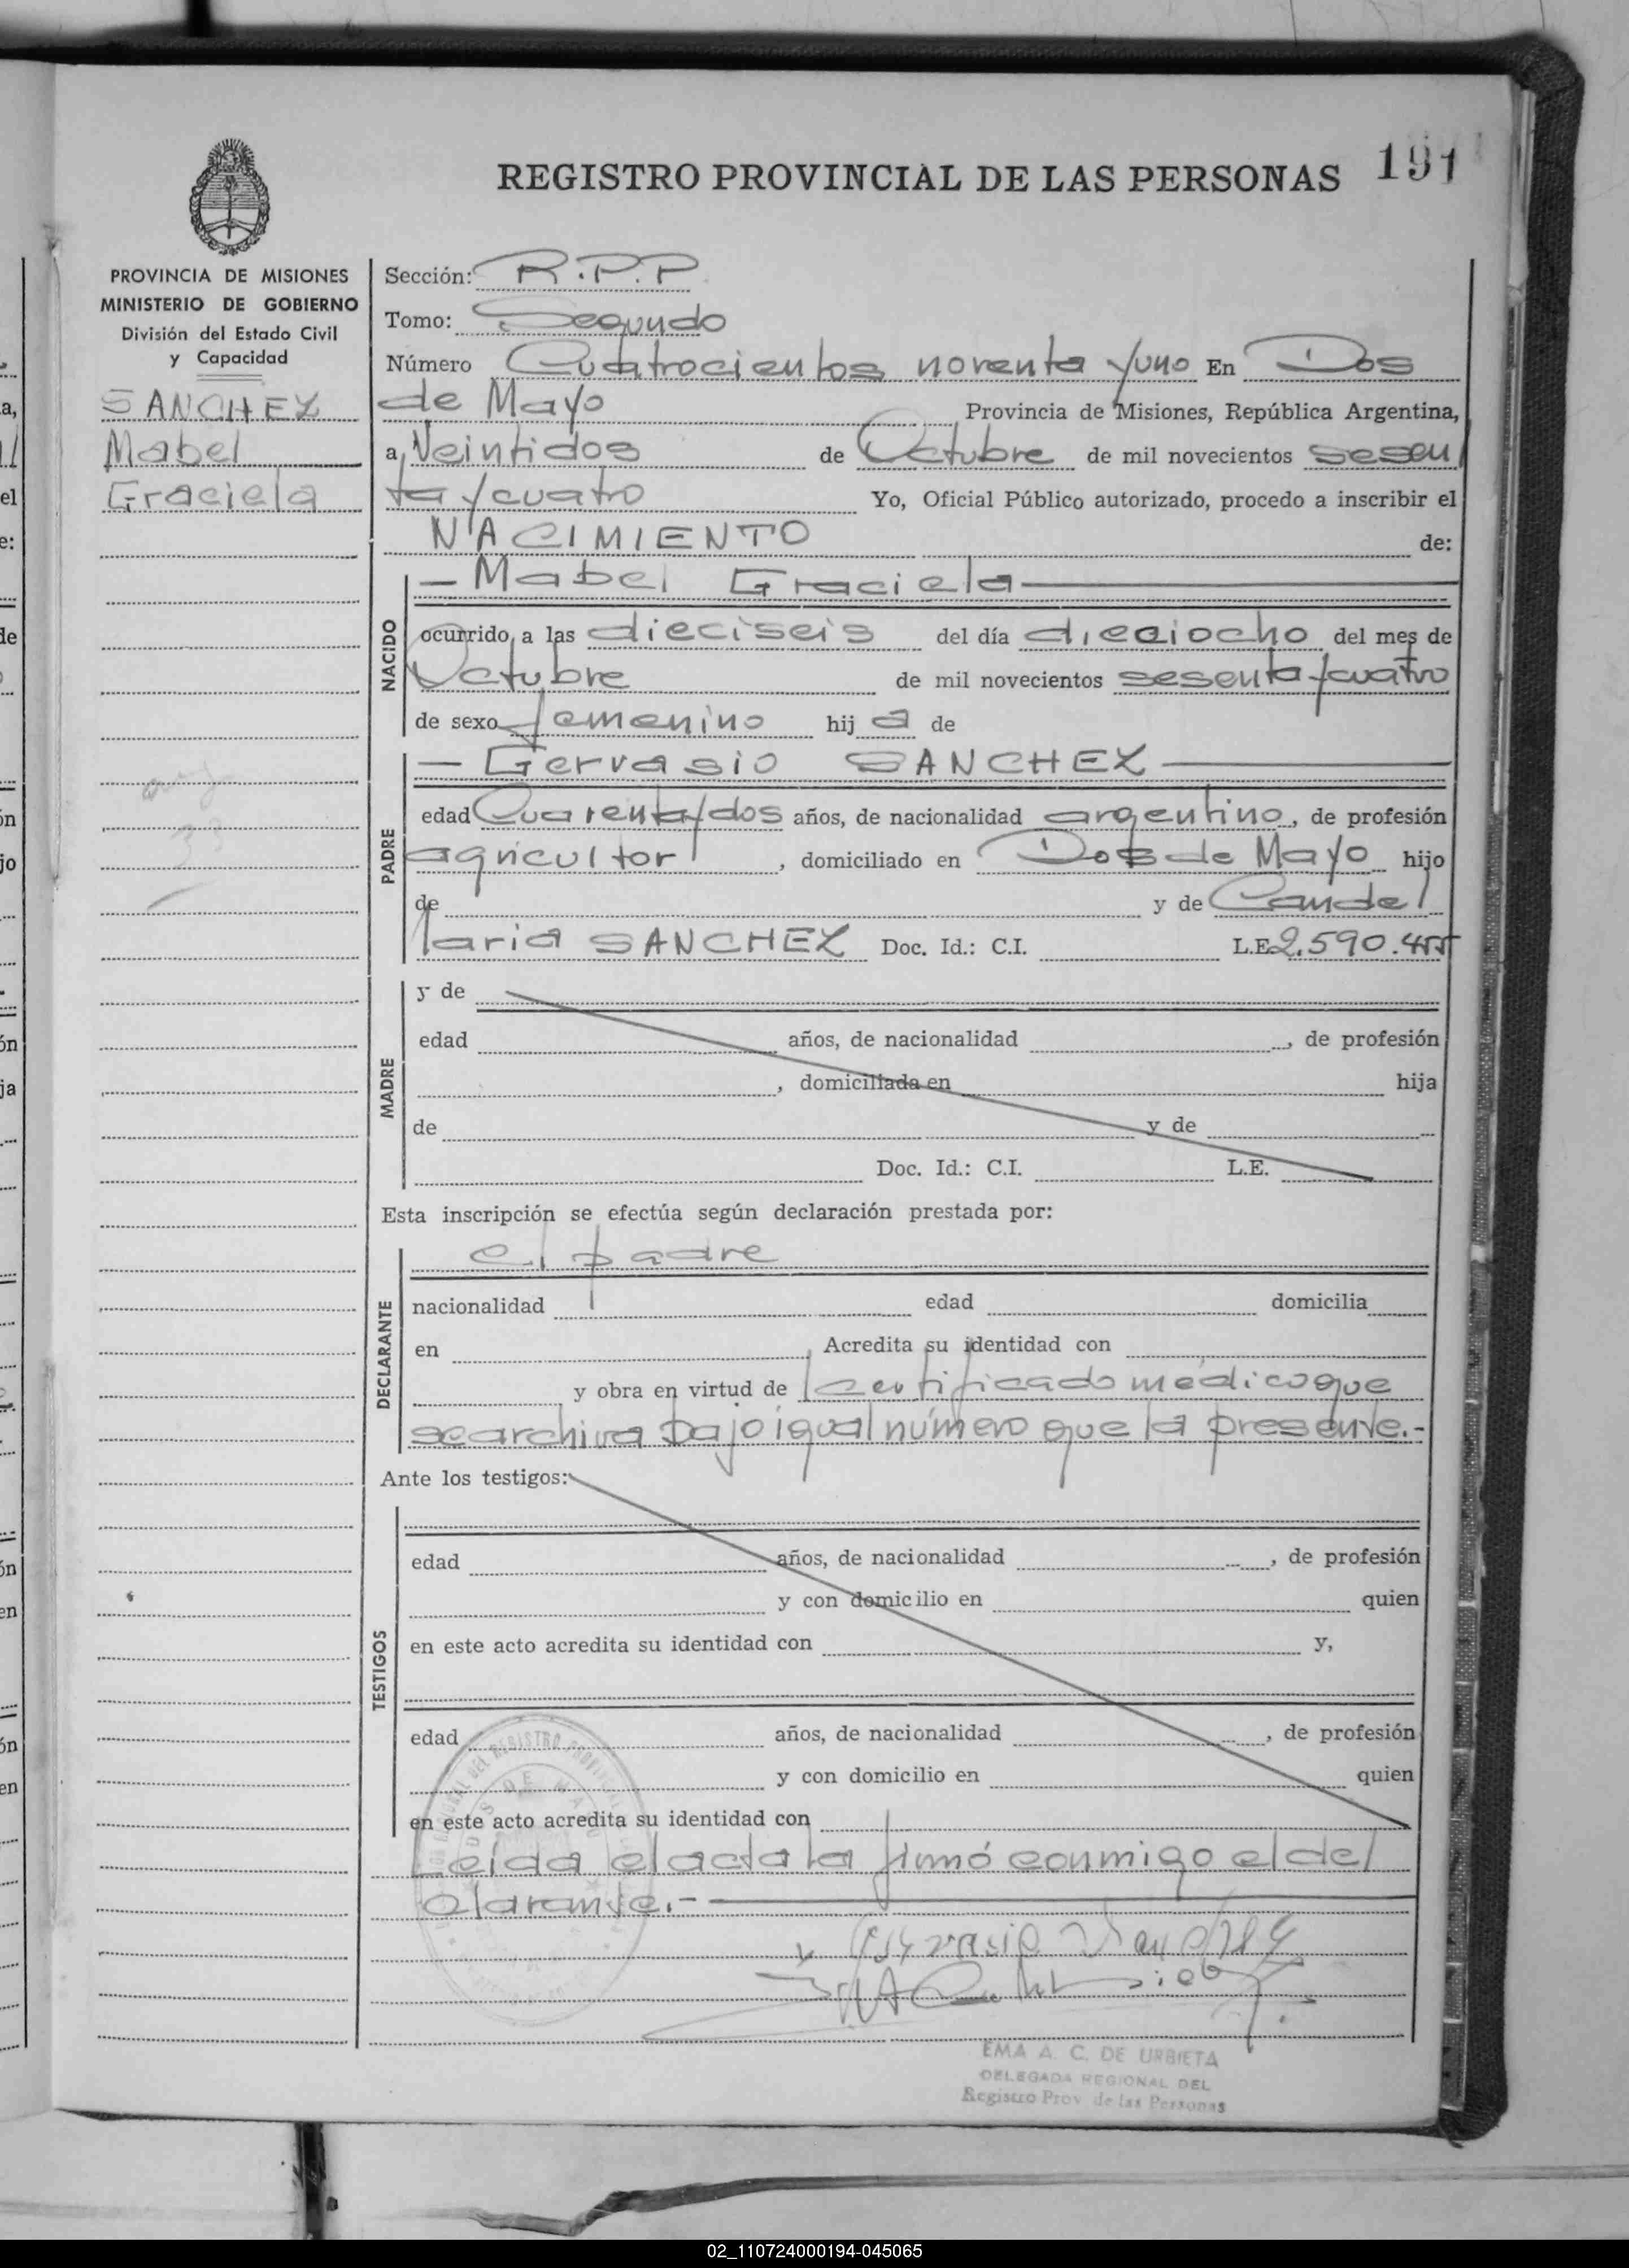 REGISTRO PROVINCIAL DE LAS PERSONAS 191
PROVINCIA DE MISIONES
MINISTERIO DE GOBIERNO
División del Estado Civil
y Capacidad
SANCHEZ
Mabel
Graciela
Sección: R.P.P
Tomo: Segundo
Número Cuatrocientos noventa y uno En Dos
de Mayo Provincia de Misiones, República Argentina,
a Veintidos de Octubre de mil novecientos sesen
ta y cuatro Yo, Oficial Público autorizado, procedo a inscribir el
NACIMIENTO de:
NACIDO
— Mabel Graciela —
ocurrido a las dieciseis del día dieciocho del mes de
Octubre de mil novecientos sesenta y cuatro
de sexo femenino hij a de
PADRE
— Gervasio SANCHEZ —
edad Cuarenta y dos años, de nacionalidad argentino, de profesión
agricultor, domiciliado en Dos de Mayo hijo
de y de Candel
laria SANCHEZ Doc. Id.: C.I. L.E. 2.590.455
MADRE
y de
edad años, de nacionalidad , de profesión
, domiciliada en hija
de y de
Doc. Id.: C.I. L.E.
Esta inscripción se efectúa según declaración prestada por:
DECLARANTE
el padre
nacionalidad edad domicilia
en Acredita su identidad con
y obra en virtud de certificado médico que
se archiva bajo igual número que la presente.-
Ante los testigos:
TESTIGOS
edad años, de nacionalidad , de profesión
y con domicilio en quien
en este acto acredita su identidad con y,
edad años, de nacionalidad , de profesión
y con domicilio en quien
en este acto acredita su identidad con
Leída el acta la firmó conmigo el del
clarante.-
Gervasio Sanchez
EMA A. C. DE URBIETA
DELEGADA REGIONAL DEL
Registro Prov. de las Personas
02_110724000194-045065